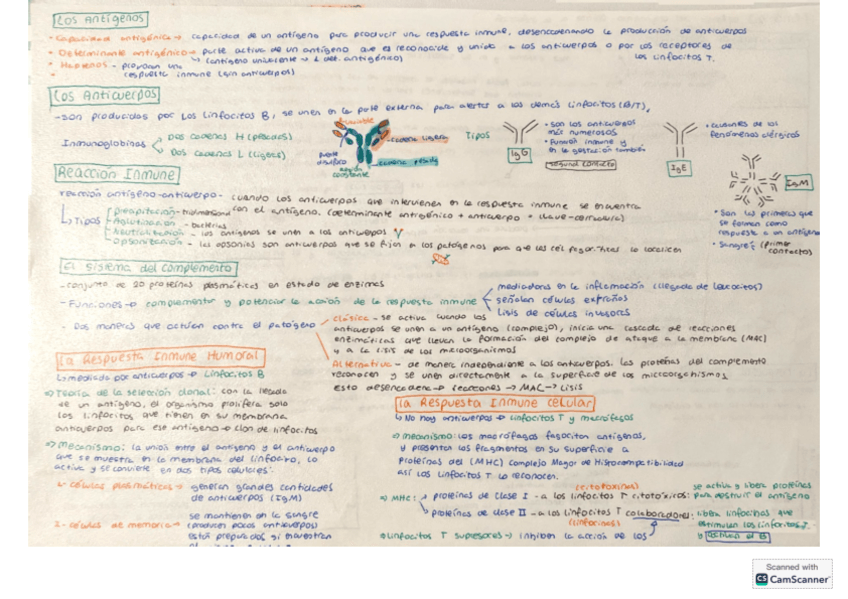 Los Antígenos
• Capacidad antigénica → capacidad de un antígeno para producir una respuesta inmune, desencadenando la producción de anticuerpos
• Determinante antigénico → parte activa de un antígeno que es reconocido y unido a los anticuerpos o por los receptores de los linfocitos T.
(antígeno univalente → 1 det. antigénico)
• Haptenos - provocan una respuesta inmune (sin anticuerpos)
Los Anticuerpos
- son producidos por los Linfocitos B, se unen en la parte externa para alertar a los demás linfocitos (B/T).
Inmunoglobinas
Dos cadenas H (pesadas)
Dos cadenas L (ligeras)
variable
cadena ligera
parte
cadena pesada
región constante
Tipos
IgG
• son los anticuerpos más numerosos
• Función inmune y en la gestación también
segundo contacto
IgE
• causantes de los fenómenos alérgicos
IgM
• Son los primeros que se forman como respuesta a un antígeno
• Sangre (primer contacto)
Reacción Inmune
reacción antígeno-anticuerpo - cuando los anticuerpos que intervienen en la respuesta inmune se encuentra con el antígeno. (determinante antigénico + anticuerpo = llave-cerradura)
Tipos
Precipitación -
Aglutinación - bacterias
Neutralización - los antígenos se unen a los anticuerpos
Opsonización - las opsonias son anticuerpos que se fijan a los patógenos para que las cél fagocíticas lo localicen
El sistema del complemento
- conjunto de 20 proteínas plasmáticas en estado de enzimas
- Funciones → complementar y potenciar la acción de la respuesta inmune
mediadora en la inflamación (llegada de leucocitos)
señalan células extrañas
Lisis de células invasoras
- Dos maneras que actúan contra el patógeno
Clásica - se activa cuando los anticuerpos se unen a un antígeno (complejo), inicia una cascada de reacciones enzimáticas que llevan la formación del complejo de ataque a la membrana (MAC) y a la lisis de los microorganismos
Alternativa - de manera independiente a los anticuerpos. Las proteínas del complemento reconocen y se unen directamente a la superficie de los microorganismos.
Esto desencadena → reacciones → MAC → Lisis
La Respuesta Inmune Humoral
↳ mediada por anticuerpos → Linfocitos B
⇒ Teoría de la selección clonal: con la llegada de un antígeno, el organismo prolifera solo los linfocitos que tienen en su membrana anticuerpos para ese antígeno → clon de linfocitos
⇒ Mecanismo: la unión entre el antígeno y el anticuerpo que se muestra en la membrana del linfocito, lo activa y se convierte en dos tipos celulares:
1- células plasmáticas → generan grandes cantidades de anticuerpos (IgM)
2- células de memoria → se mantienen en la sangre (producen pocos anticuerpos)
están preparados si encuentran
La Respuesta Inmune Celular
↳ No hay anticuerpos → Linfocitos T y macrófagos
⇒ Mecanismo: los macrófagos fagocitan antígenos, y presentan los fragmentos en su superficie a Proteínas del (MHC) Complejo Mayor de Histocompatibilidad así los Linfocitos T lo reconocen.
⇒ MHC:
proteínas de clase I - a los linfocitos T citotóxicos: se activa y libera proteínas para destruir el antígeno
(citotoxinas)
proteínas de clase II - a los linfocitos T colaboradores: libera linfocinas que estimulan los linfocitos T y activan el B
(linfocinas)
⇒ Linfocitos T supresores → inhiben la acción de los
Scanned with
CS CamScanner